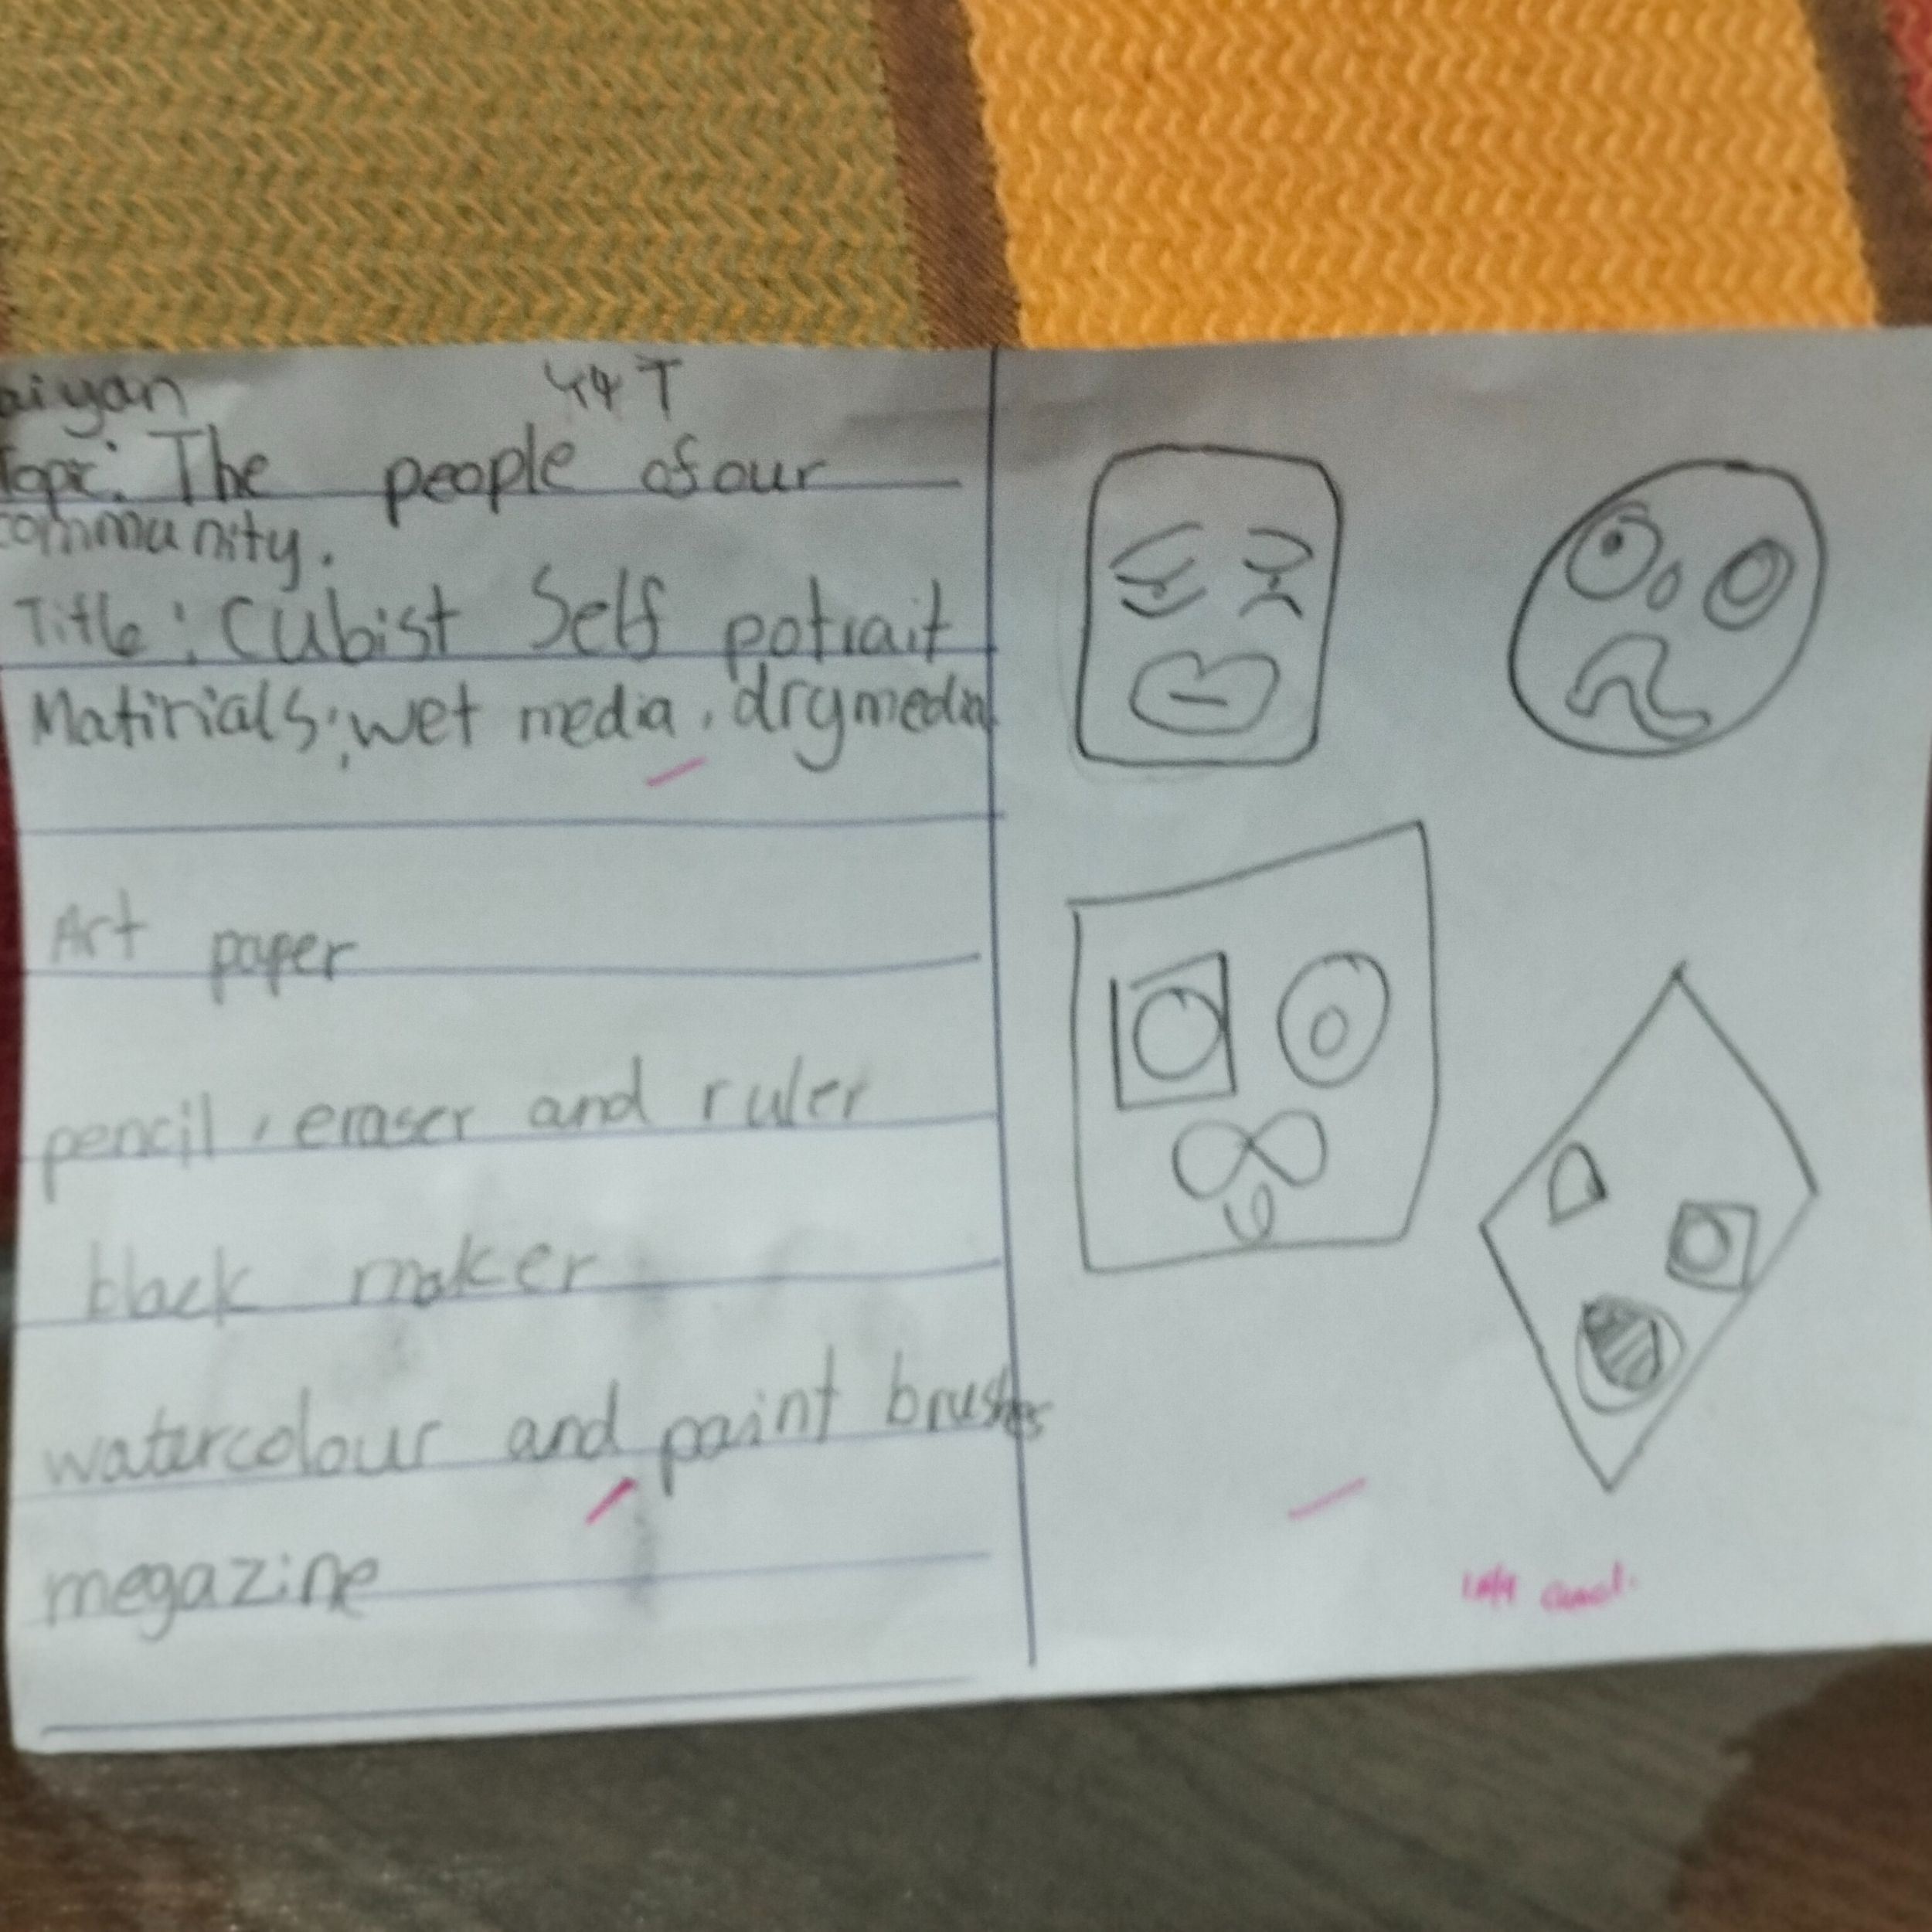 aiyan Y4 T
Topic: The people of our
community.
Title: Cubist Self potrait
Matirials; wet media, dry media
Art paper
pencil, eraser and ruler
black maker
watercolour and paint brushes
megazine